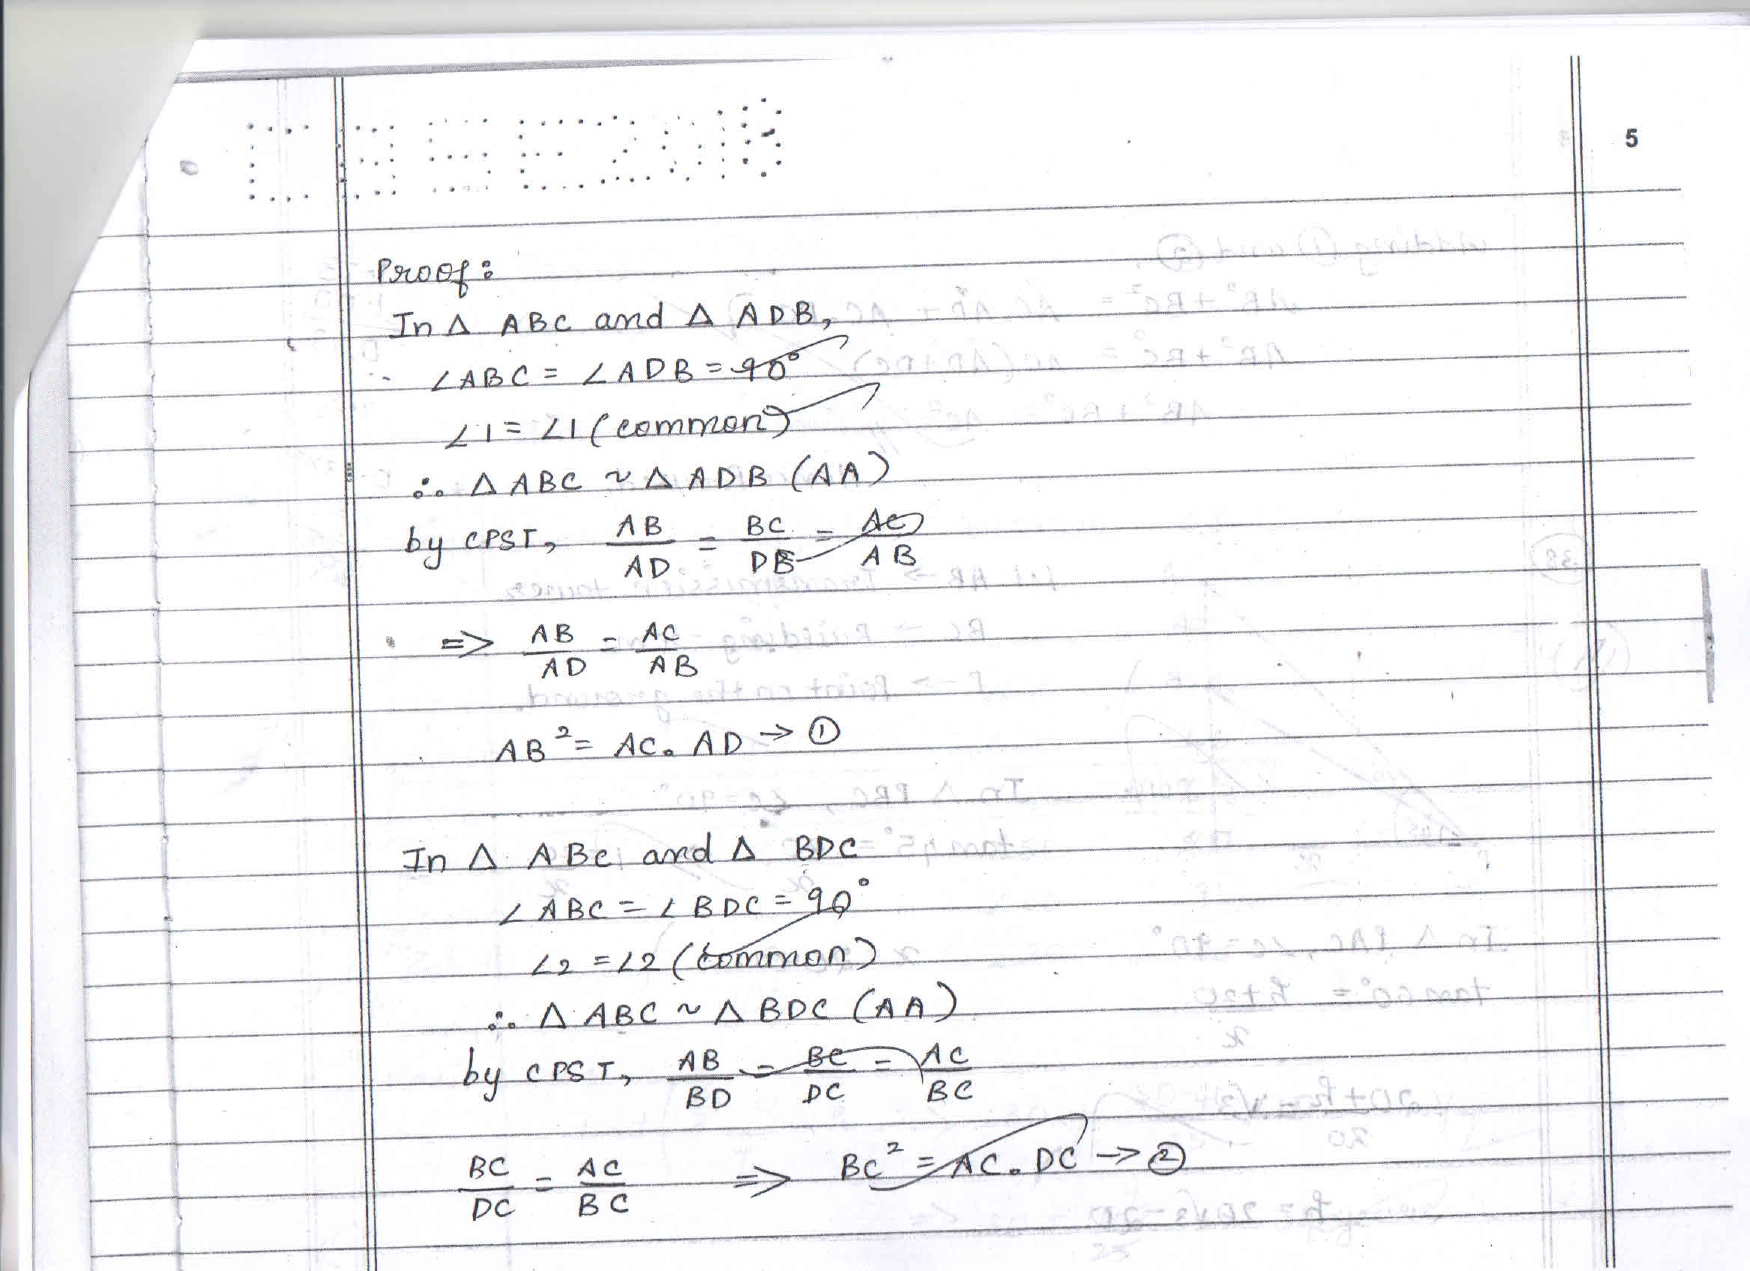 CBSE2018
5
Proof:
In △ ABC and △ ADB,
∠ABC = ∠ADB = 90°
∠1 = ∠1 (common)
∴ △ ABC ~ △ ADB (AA)
by CPST, AB/AD = BC/DB = AC/AB
=> AB/AD = AC/AB
AB² = AC. AD → ①
In △ ABC and △ BDC
∠ABC = ∠BDC = 90°
∠2 = ∠2 (common)
∴ △ ABC ~ △ BDC (AA)
by CPST, AB/BD = BC/DC = AC/BC
BC/DC = AC/BC => BC² = AC. DC → ②